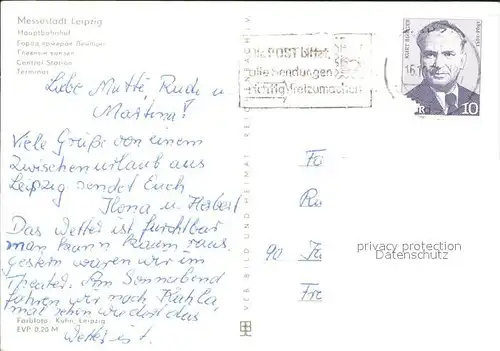 Messestadt Leipzig
Hauptbahnhof
Город ярмарок Лейпциг
Главный вокзал
Central Station
Terminus
Liebe Mutti, Rudi u.
Martina!
Viele Grüße von einem
Zwischenurlaub aus
Leipzig sendet Euch
Ilona u. Herbert
Das Wetter ist furchtbar
man kann kaum raus.
Gestern waren wir im
Theater. Am Sonnabend
fahren wir nach Kahla
mal sehn wie dort das
Wetter ist.
Farbfoto: Kühn, Leipzig
EVP 0,20 M
VEB BILD UND HEIMAT REI
POST bittet:
alle Sendungen
richtig freizumachen
KURT BÜRGER
1894-1951
10
Fa
Ru
90 Ja
Fre
privacy protection
Datenschutz